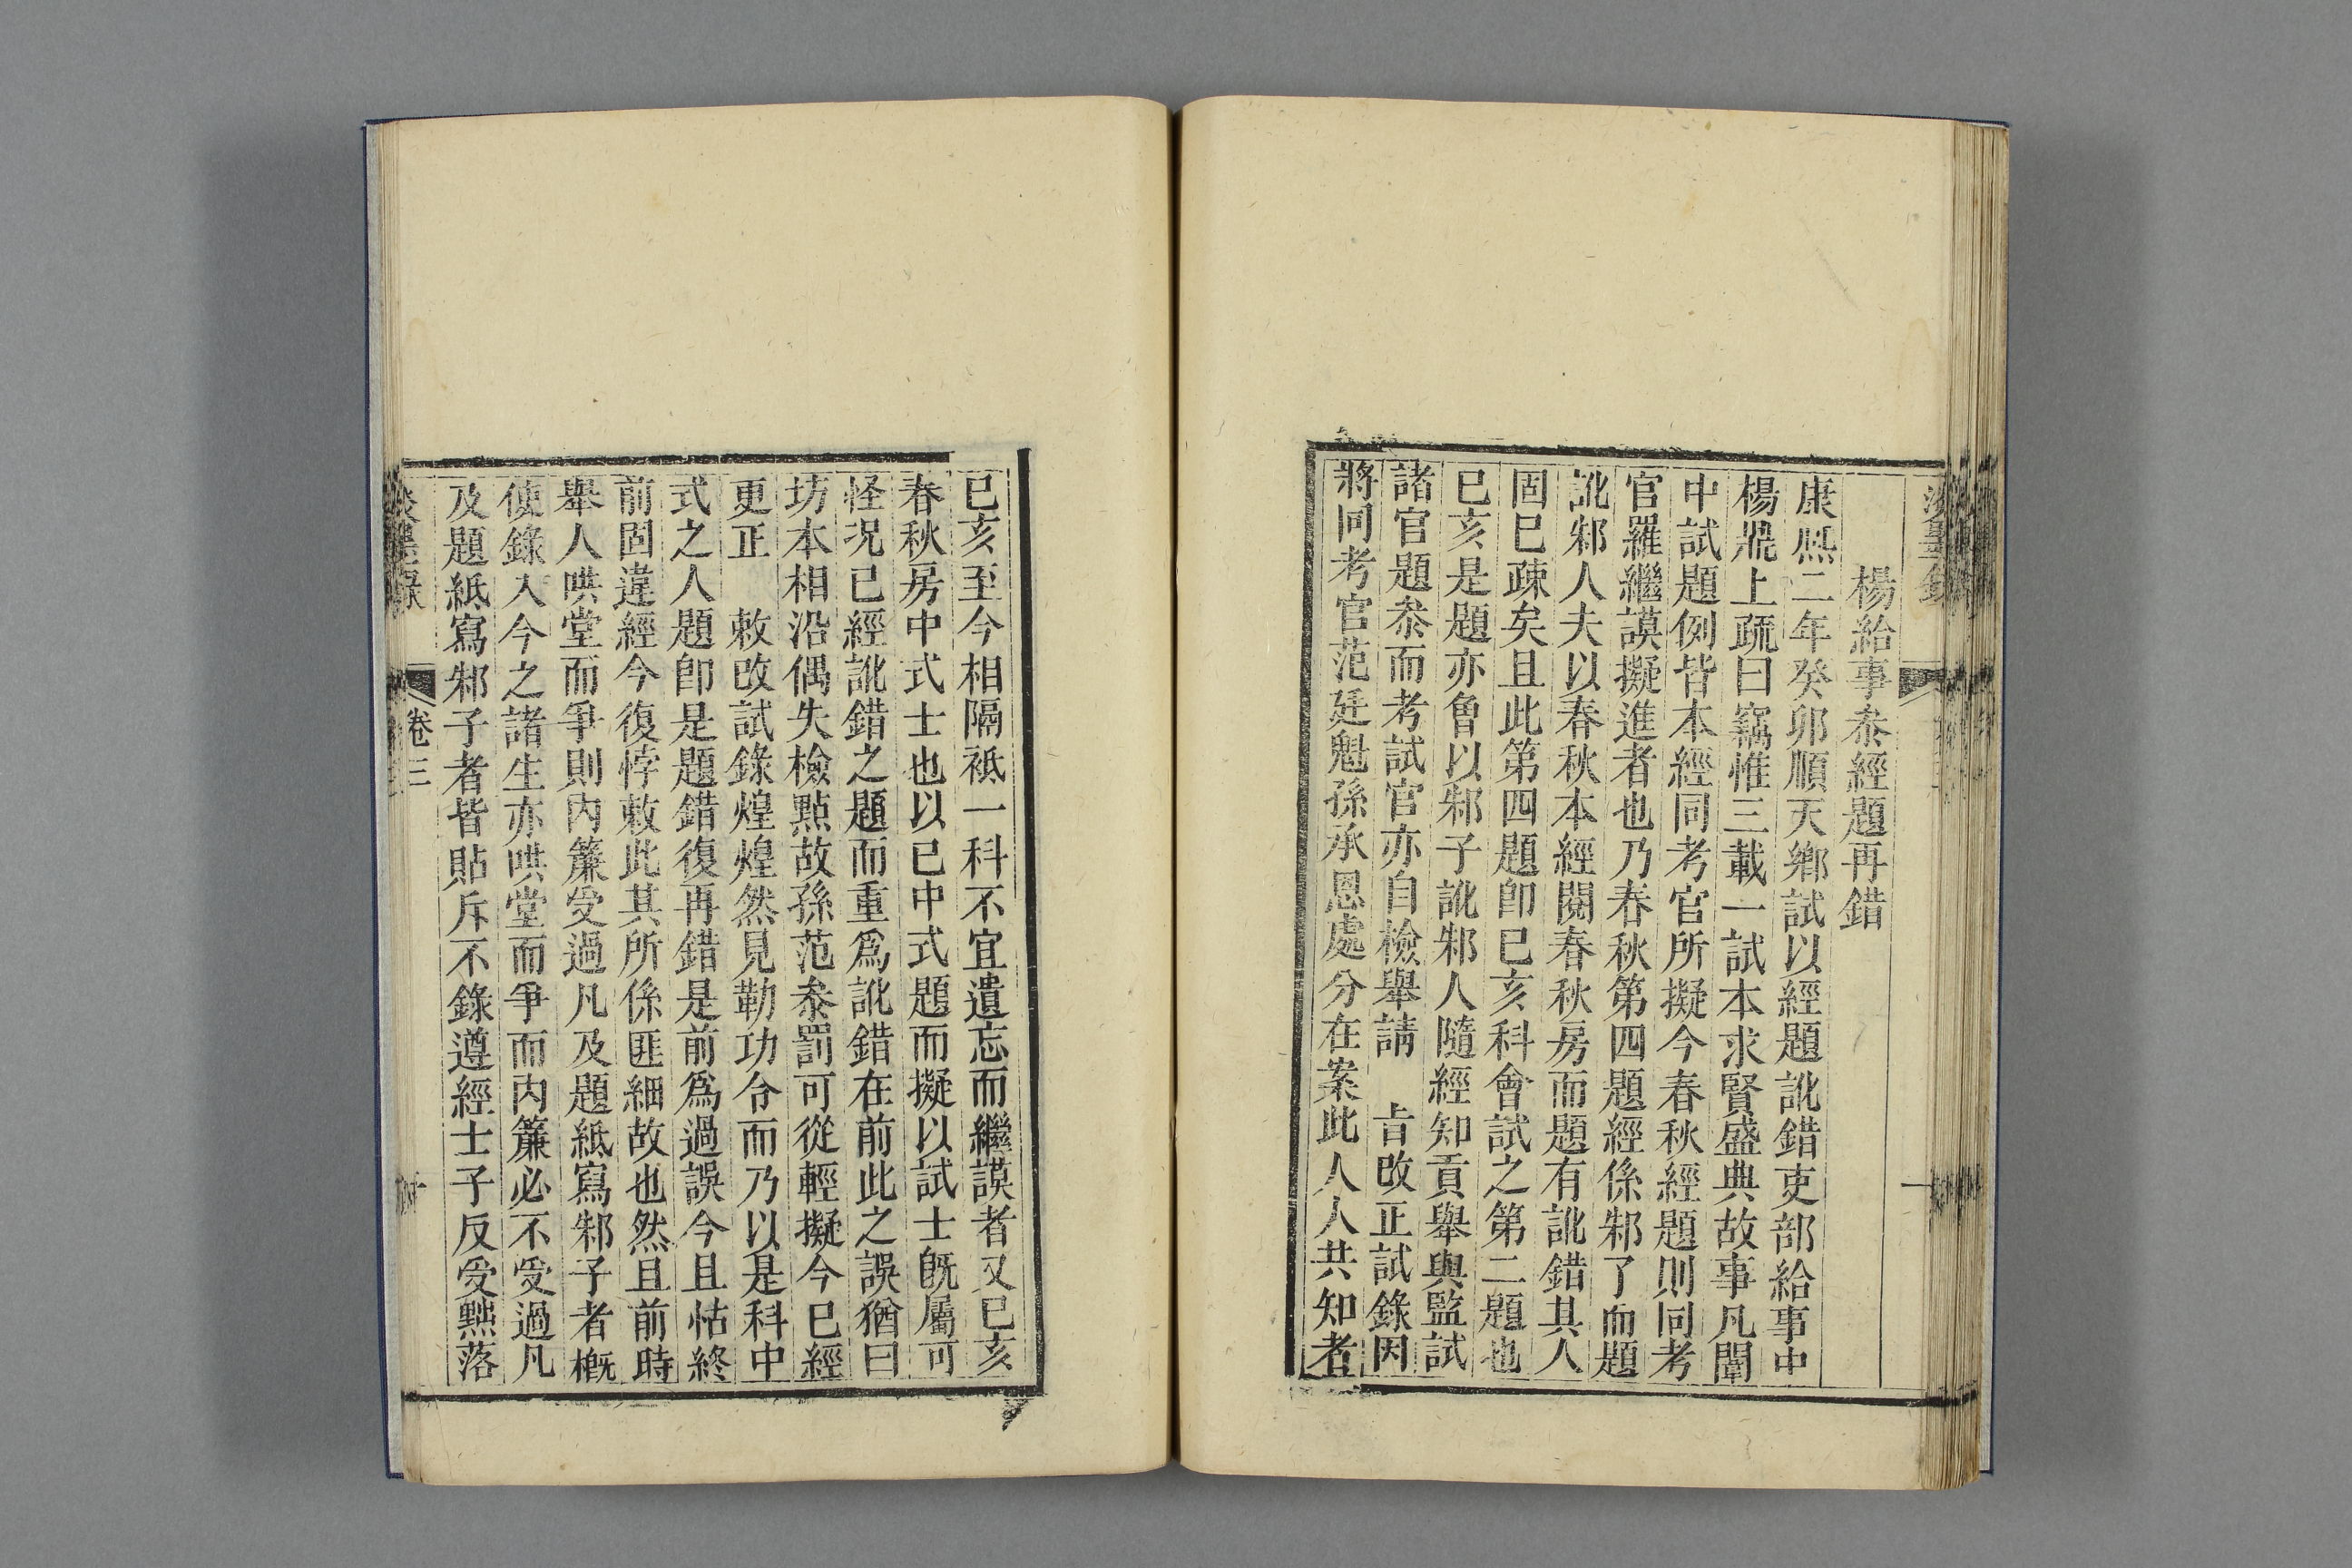 楊給事叅經題再錯
康熈二年癸卯順天鄉試以經題訛錯吏部給事中
楊鼎上疏曰竊惟三載一試本求賢盛典故事凡闈
中試題例皆本經同考官所擬今春秋經題則同考
官羅繼謨擬進者也乃春秋第四題經係邾子而題
訛邾人夫以春秋本經閱春秋房而題有訛錯其人
固已疎矣且此第四題卽已亥科會試之第二題也
已亥是題亦曾以邾子訛邾人隨經知貢舉與監試
諸官題叅而考試官亦自檢舉請　旨改正試錄因
將同考官范廷魁孫承恩處分在案此人人共知者
已亥至今相隔祗一科不宜遺忘而繼謨者又已亥
春秋房中式士也以已中式題而擬以試士旣屬可
怪况已經訛錯之題而重爲訛錯在前此之誤猶曰
坊本相沿偶失檢點故孫范叅罰可從輕擬今已經
更正　敕改試錄煌煌然見勒功令而乃以是科中
式之人題卽是題錯復再錯是前爲過誤今且怙終
前固違經今復悖敕此其所係匪細故也然且前時
舉人哄堂而爭則内簾受過凡及題紙寫邾子者槪
使錄入今之諸生亦哄堂而爭而内簾必不受過凡
及題紙寫邾子者皆貼斥不錄遵經士子反受黜落
卷三